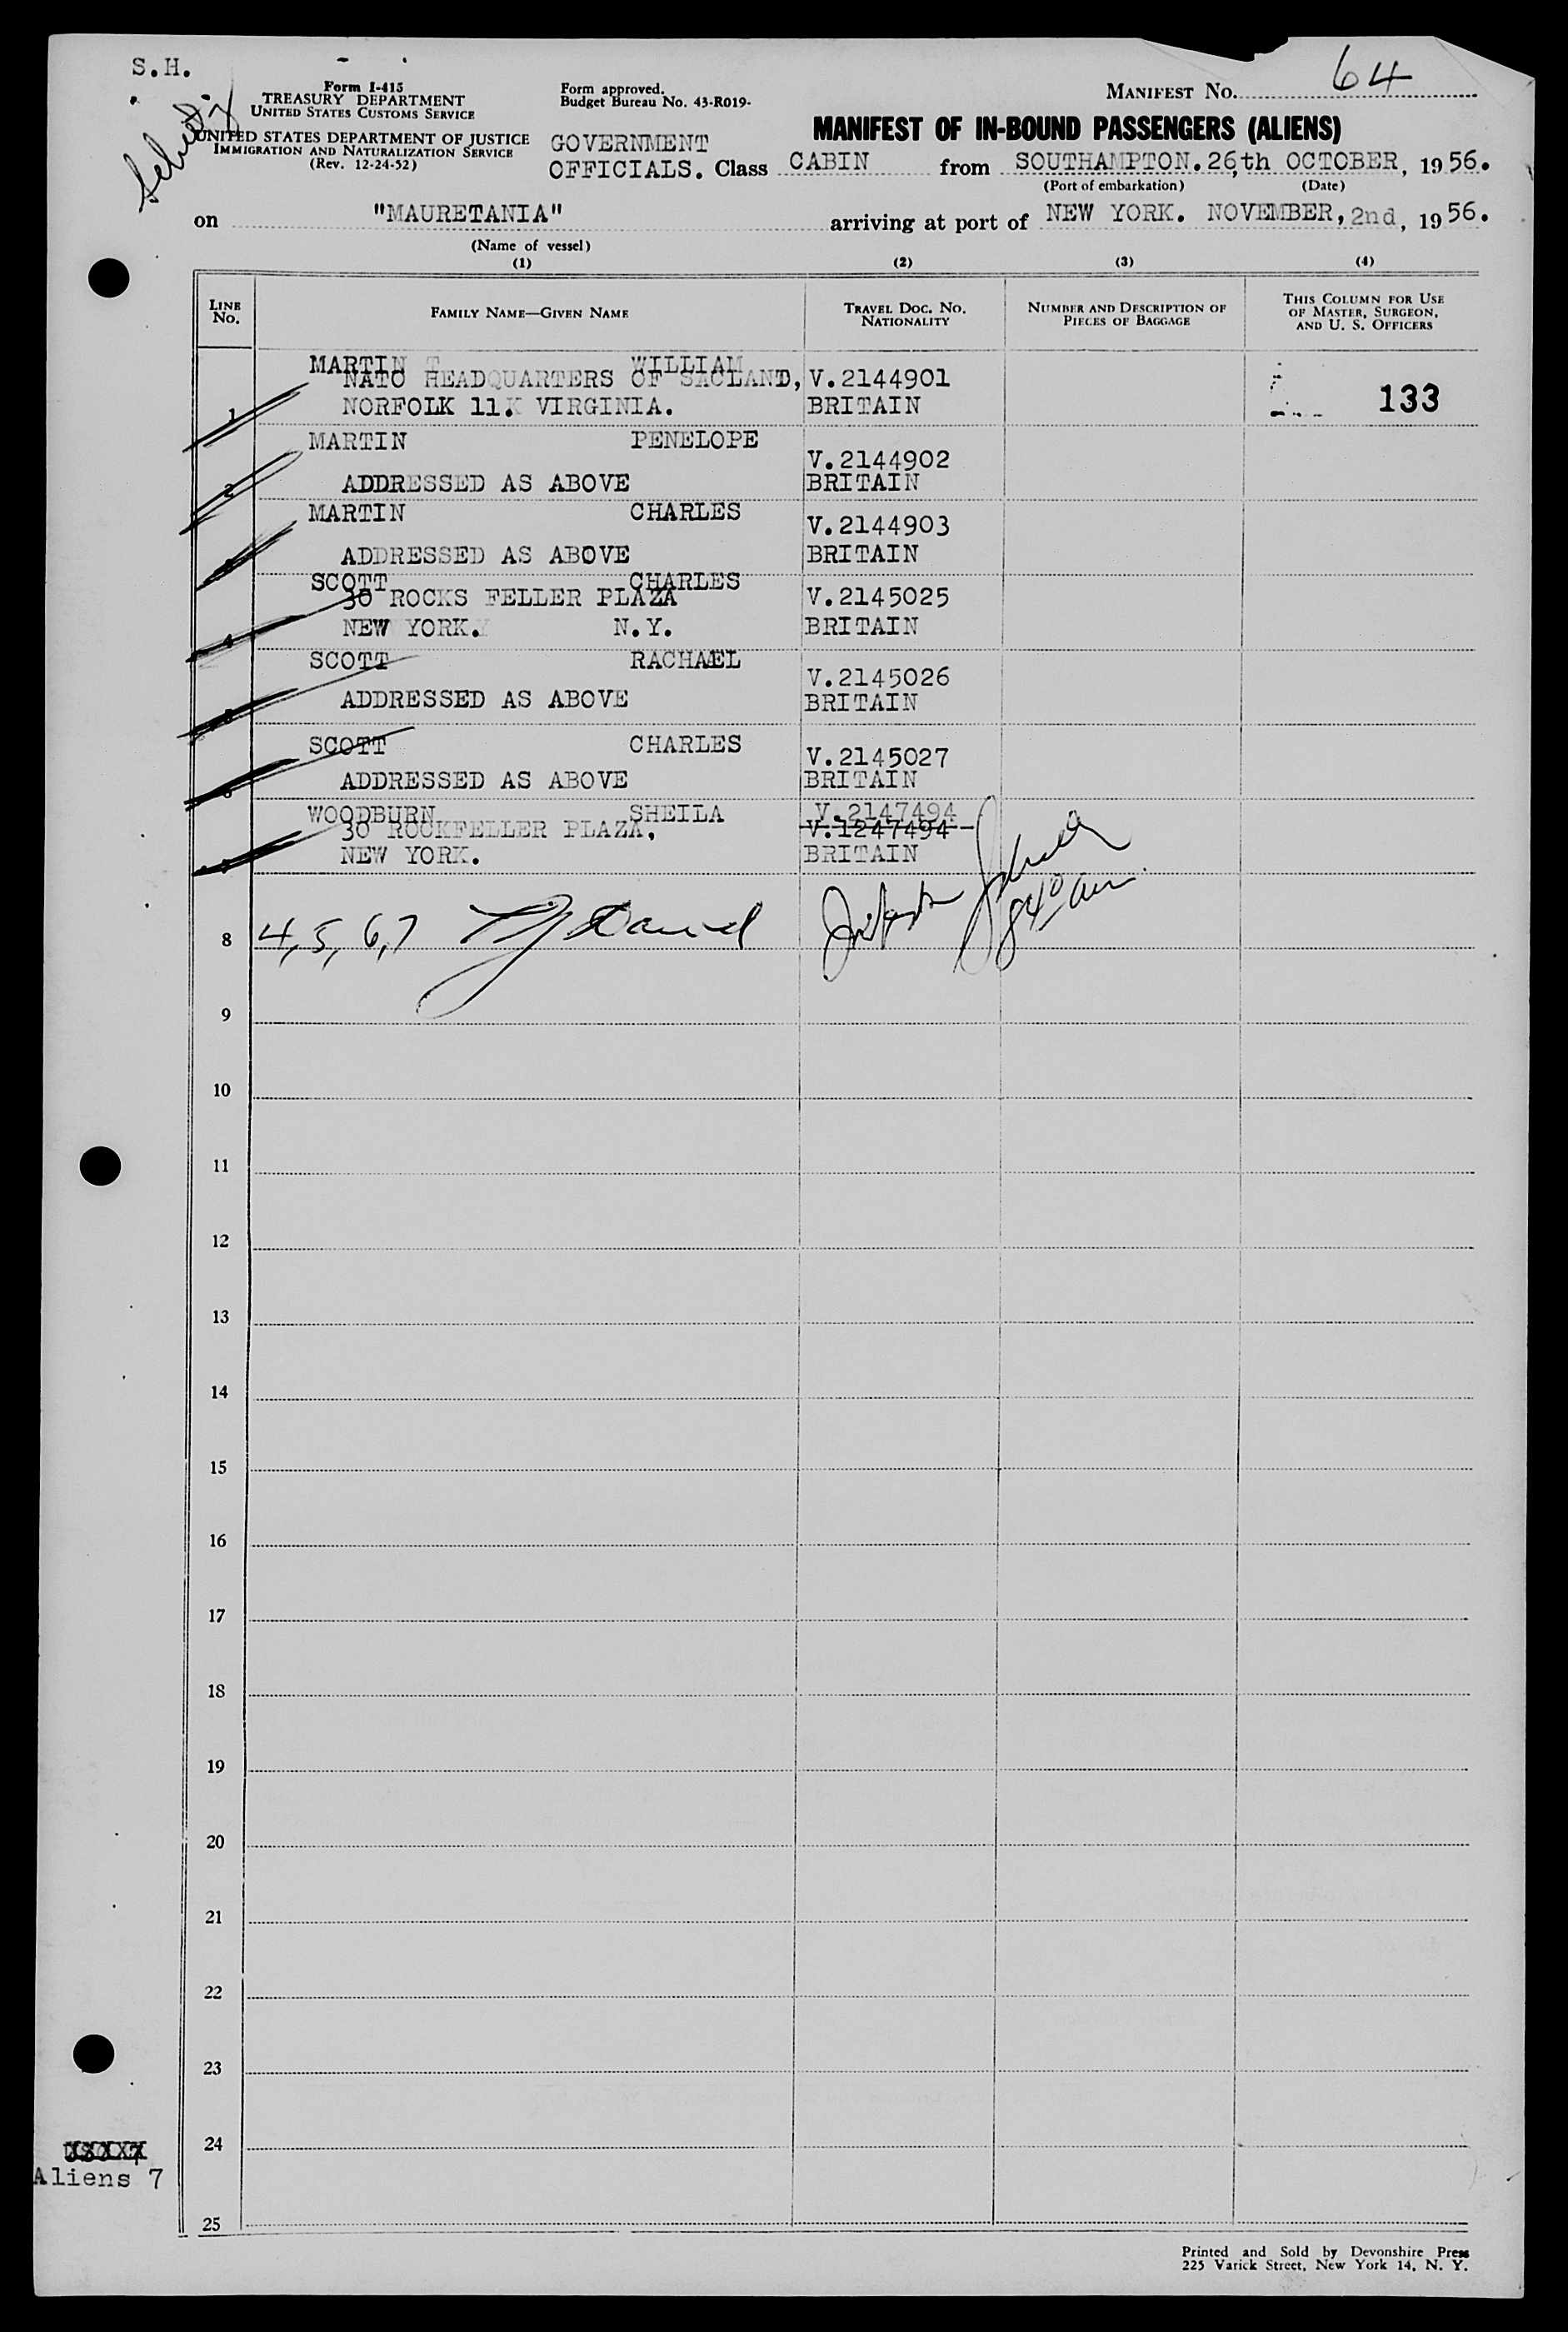 S.H.
Form I-415
TREASURY DEPARTMENT
UNITED STATES CUSTOMS SERVICE
UNITED STATES DEPARTMENT OF JUSTICE
IMMIGRATION AND NATURALIZATION SERVICE
(Rev. 12-24-52)
Form approved.
Budget Bureau No. 43-R019-
MANIFEST NO. 64
MANIFEST OF IN-BOUND PASSENGERS (ALIENS)
GOVERNMENT
OFFICIALS. Class CABIN from SOUTHAMPTON. 26,th OCTOBER, 1956.
(Port of embarkation) (Date)
on "MAURETANIA" arriving at port of NEW YORK. NOVEMBER, 2nd, 1956.
(Name of vessel)
(1) (2) (3) (4)
LINE NO. FAMILY NAME—GIVEN NAME TRAVEL DOC. NO. NATIONALITY NUMBER AND DESCRIPTION OF PIECES OF BAGGAGE THIS COLUMN FOR USE OF MASTER, SURGEON, AND U. S. OFFICERS
MARTIN WILLIAM
NATO HEADQUARTERS OF SACLAND, V.2144901
1 NORFOLK 11. VIRGINIA. BRITAIN 133
MARTIN PENELOPE
V.2144902
2 ADDRESSED AS ABOVE BRITAIN
MARTIN CHARLES
V.2144903
3 ADDRESSED AS ABOVE BRITAIN
SCOTT CHARLES
30 ROCKS FELLER PLAZA V.2145025
4 NEW YORK. N.Y. BRITAIN
SCOTT RACHAEL
V.2145026
5 ADDRESSED AS ABOVE BRITAIN
SCOTT CHARLES
V.2145027
6 ADDRESSED AS ABOVE BRITAIN
WOODBURN SHEILA V.2147494
30 ROCKFELLER PLAZA, V.1247494
7 NEW YORK. BRITAIN
8 4, 5, 6, 7 Daniel 840 am
9
10
11
12
13
14
15
16
17
18
19
20
21
22
23
24
25
Aliens 7
Printed and Sold by Devonshire Press
225 Varick Street, New York 14, N. Y.